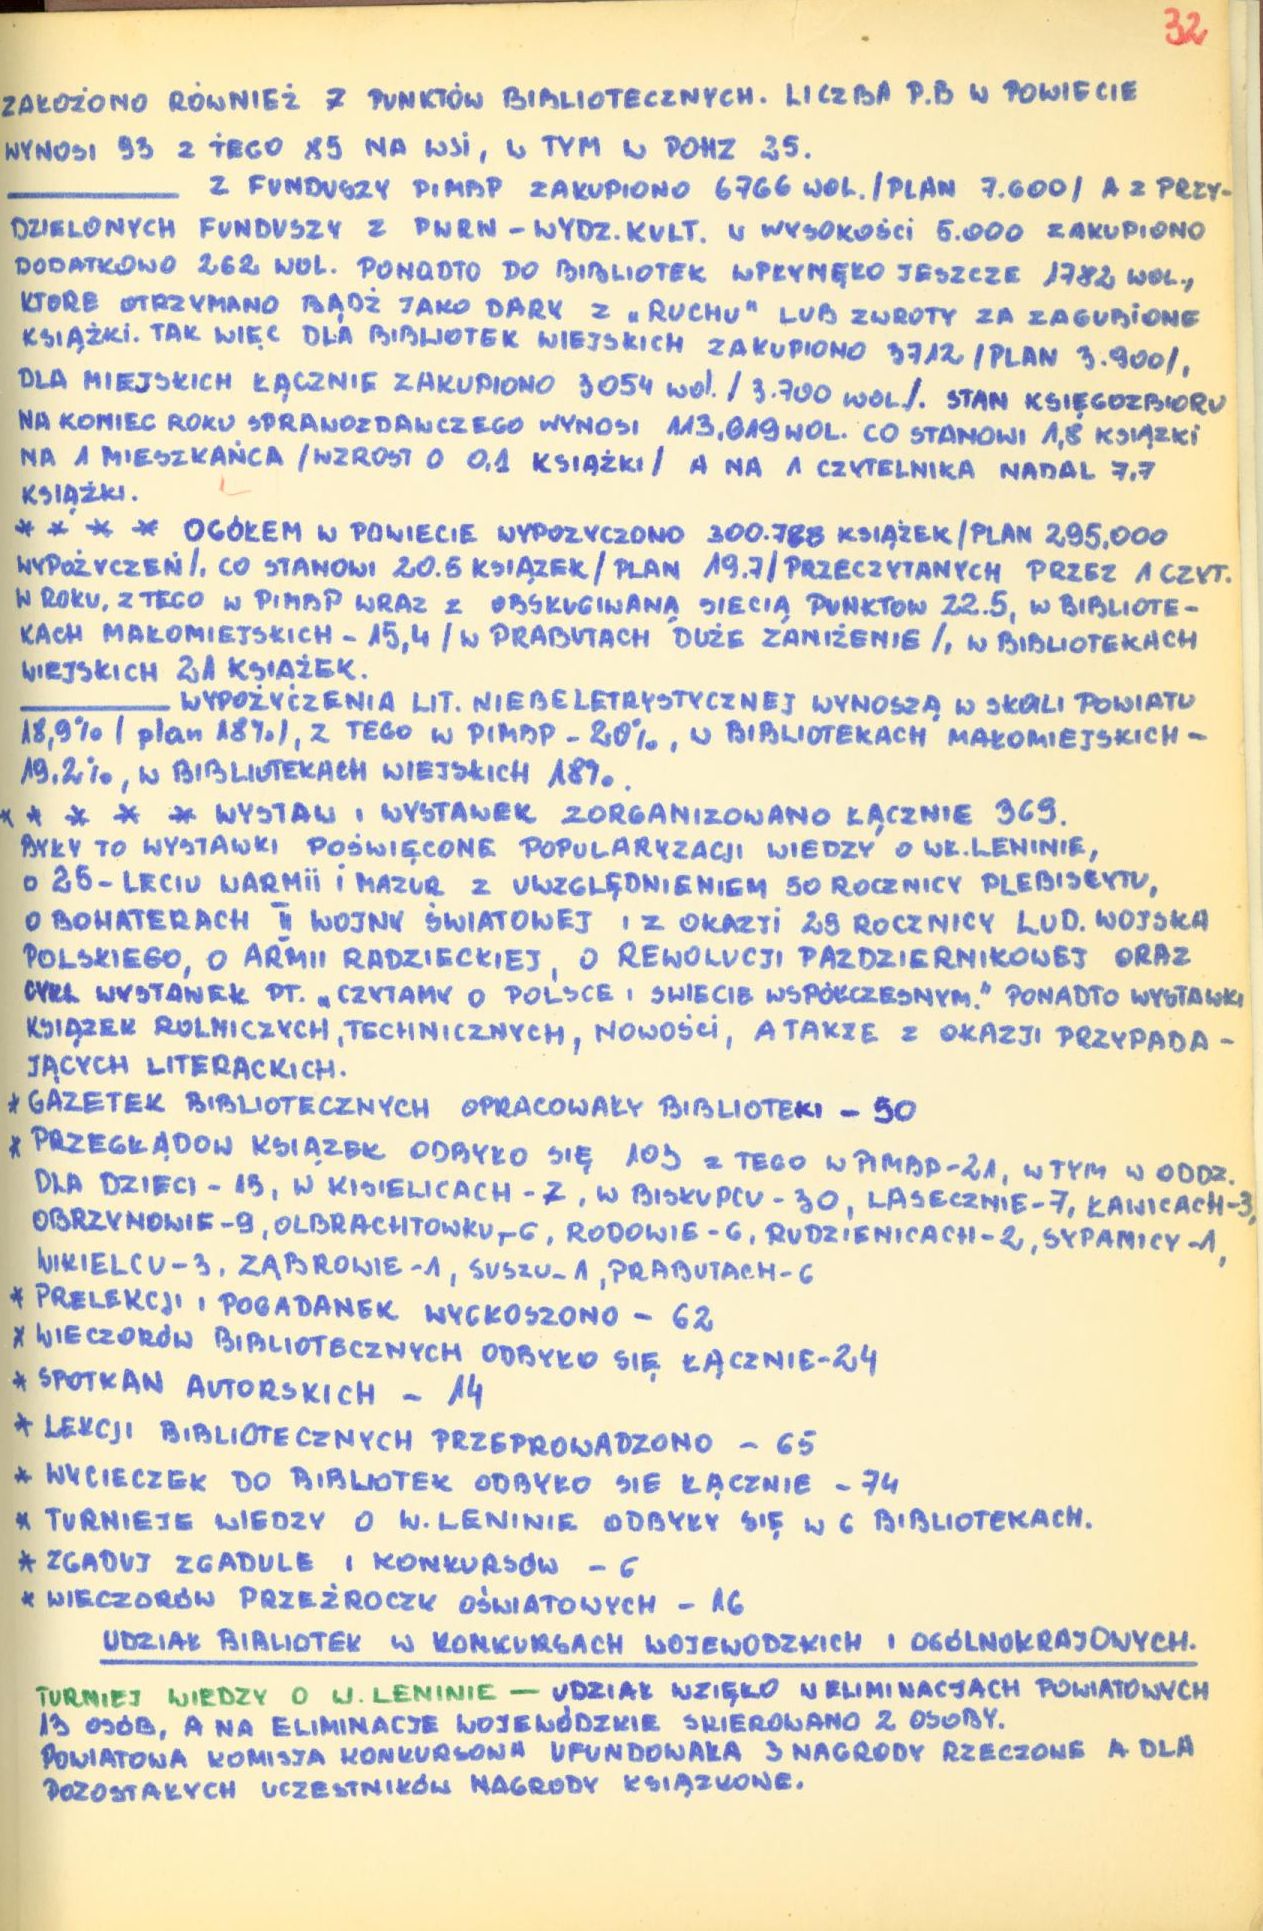 32
ZAŁOŻONO RÓWNIEŻ 7 PUNKTÓW BIBLIOTECZNYCH. LICZBA P.B W POWIECIE
WYNOSI 93 Z TEGO 85 NA WSI, W TYM W POHZ 25.
Z FUNDUSZY PIMBP ZAKUPIONO 6766 WOL. /PLAN 7.600/ A Z PRZY-
DZIELONYCH FUNDUSZY Z PWRN - WYDZ. KULT. W WYSOKOŚCI 5.000 ZAKUPIONO
DODATKOWO 262 WOL. PONADTO DO BIBLIOTEK WPŁYNĘŁO JESZCZE 1782 WOL.,
KTORE OTRZYMANO BĄDŹ JAKO DARY Z "RUCHU" LUB ZWROTY ZA ZAGUBIONE
KSIĄŻKI. TAK WIĘC DLA BIBLIOTEK WIEJSKICH ZAKUPIONO 3712 /PLAN 3.900/,
DLA MIEJSKICH ŁĄCZNIE ZAKUPIONO 3054 wol. / 3.700 WOL/. STAN KSIĘGOZBIORU
NA KONIEC ROKU SPRAWOZDAWCZEGO WYNOSI 113,019 WOL. CO STANOWI 1,8 KSIĄZKI
NA 1 MIESZKAŃCA /WZROST O 0,1 KSIĄŻKI/ A NA 1 CZYTELNIKA NADAL 7,7
KSIĄŻKI.
* * * * OGÓŁEM W POWIECIE WYPOZYCZONO 300.788 KSIĄŻEK /PLAN 295,000
WYPOŻYCZEŃ/, CO STANOWI 20.5 KSIĄZEK / PLAN 19.7/ PRZECZYTANYCH PRZEZ 1 CZYT.
W ROKU, Z TEGO W PIMBP WRAZ Z OBSŁUGIWANĄ SIECIĄ PUNKTOW 22.5, W BIBLIOTE-
KACH MAŁOMIEJSKICH - 15,4 / W PRABUTACH DUŻE ZANIŻENIE /, W BIBLIOTEKACH
WIEJSKICH 21 KSIĄŻEK.
WYPOŻYCZENIA LIT. NIEBELETRYSTYCZNEJ WYNOSZĄ W SKALI POWIATU
18,9% / plan 18%/, Z TEGO W PIMBP - 20%, W BIBLIOTEKACH MAŁOMIEJSKICH -
19.2%, W BIBLIOTEKACH WIEJSKICH 18%.
* * * * * WYSTAW I WYSTAWEK ZORGANIZOWANO ŁĄCZNIE 369.
BYŁY TO WYSTAWKI POŚWIĘCONE POPULARYZACJI WIEDZY O WŁ. LENINIE,
O 25-LECIU WARMII I MAZUR Z UWZGLĘDNIENIEM 50 ROCZNICY PLEBISCYTU,
O BOHATERACH II WOJNY ŚWIATOWEJ I Z OKAZJI 29 ROCZNICY LUD. WOJSKA
POLSKIEGO, O ARMII RADZIECKIEJ, O REWOLUCJI PAZDZIERNIKOWEJ ORAZ
CYKL WYSTAWEK PT. "CZYTAMY O POLSCE I SWIECIE WSPÓŁCZESNYM." PONADTO WYSTAWKI
KSIĄZEK ROLNICZYCH, TECHNICZNYCH, NOWOŚCI, A TAKZE Z OKAZJI PRZYPADA-
JĄCYCH LITERACKICH.
* GAZETEK BIBLIOTECZNYCH OPRACOWAŁY BIBLIOTEKI - 50
* PRZEGLĄDOW KSIĄZEK ODBYŁO SIĘ 103 Z TEGO W PIMBP-21, W TYM W ODDZ.
DLA DZIECI - 19, W KISIELICACH - 7, W BISKUPCU - 30, LASECZNIE-7, ŁAWICACH-3,
OBRZYNOWIE - 9, OLBRACHTOWKU - 6, RODOWIE - 6, RUDZIENICACH - 2, SYPANICY -1,
WIKIELCU - 3, ZĄBROWIE -1, SUSZU - 1, PRABUTACH - 6
* PRELEKCJI I POGADANEK WYGŁOSZONO - 62
* WIECZORÓW BIBLIOTECZNYCH ODBYŁO SIĘ ŁĄCZNIE - 24
* SPOTKAN AUTORSKICH - 14
* LEKCJI BIBLIOTECZNYCH PRZEPROWADZONO - 65
* WYCIECZEK DO BIBLIOTEK ODBYŁO SIE ŁĄCZNIE - 74
* TURNIEJE WIEDZY O W. LENINIE ODBYŁY SIĘ W 6 BIBLIOTEKACH.
* ZGADUJ ZGADULE I KONKURSÓW - 6
* WIECZORÓW PRZEŹROCZY OŚWIATOWYCH - 16
UDZIAŁ BIBLIOTEK W KONKURSACH WOJEWODZKICH I OGÓLNOKRAJOWYCH.
TURNIEJ WIEDZY O W. LENINIE — UDZIAŁ WZIĘŁO W ELIMINACJACH POWIATOWYCH
13 OSÓB, A NA ELIMINACJE WOJEWÓDZKIE SKIEROWANO 2 OSOBY.
POWIATOWA KOMISJA KONKURSOWA UFUNDOWAŁA 3 NAGRODY RZECZOWE A DLA
POZOSTAŁYCH UCZESTNIKÓW NAGRODY KSIĄZKOWE.